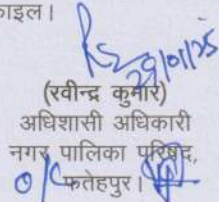 फाइल।
29/01/25
(रवीन्द्र कुमार)
अधिशासी अधिकारी
नगर पालिका परिषद,
फतेहपुर।